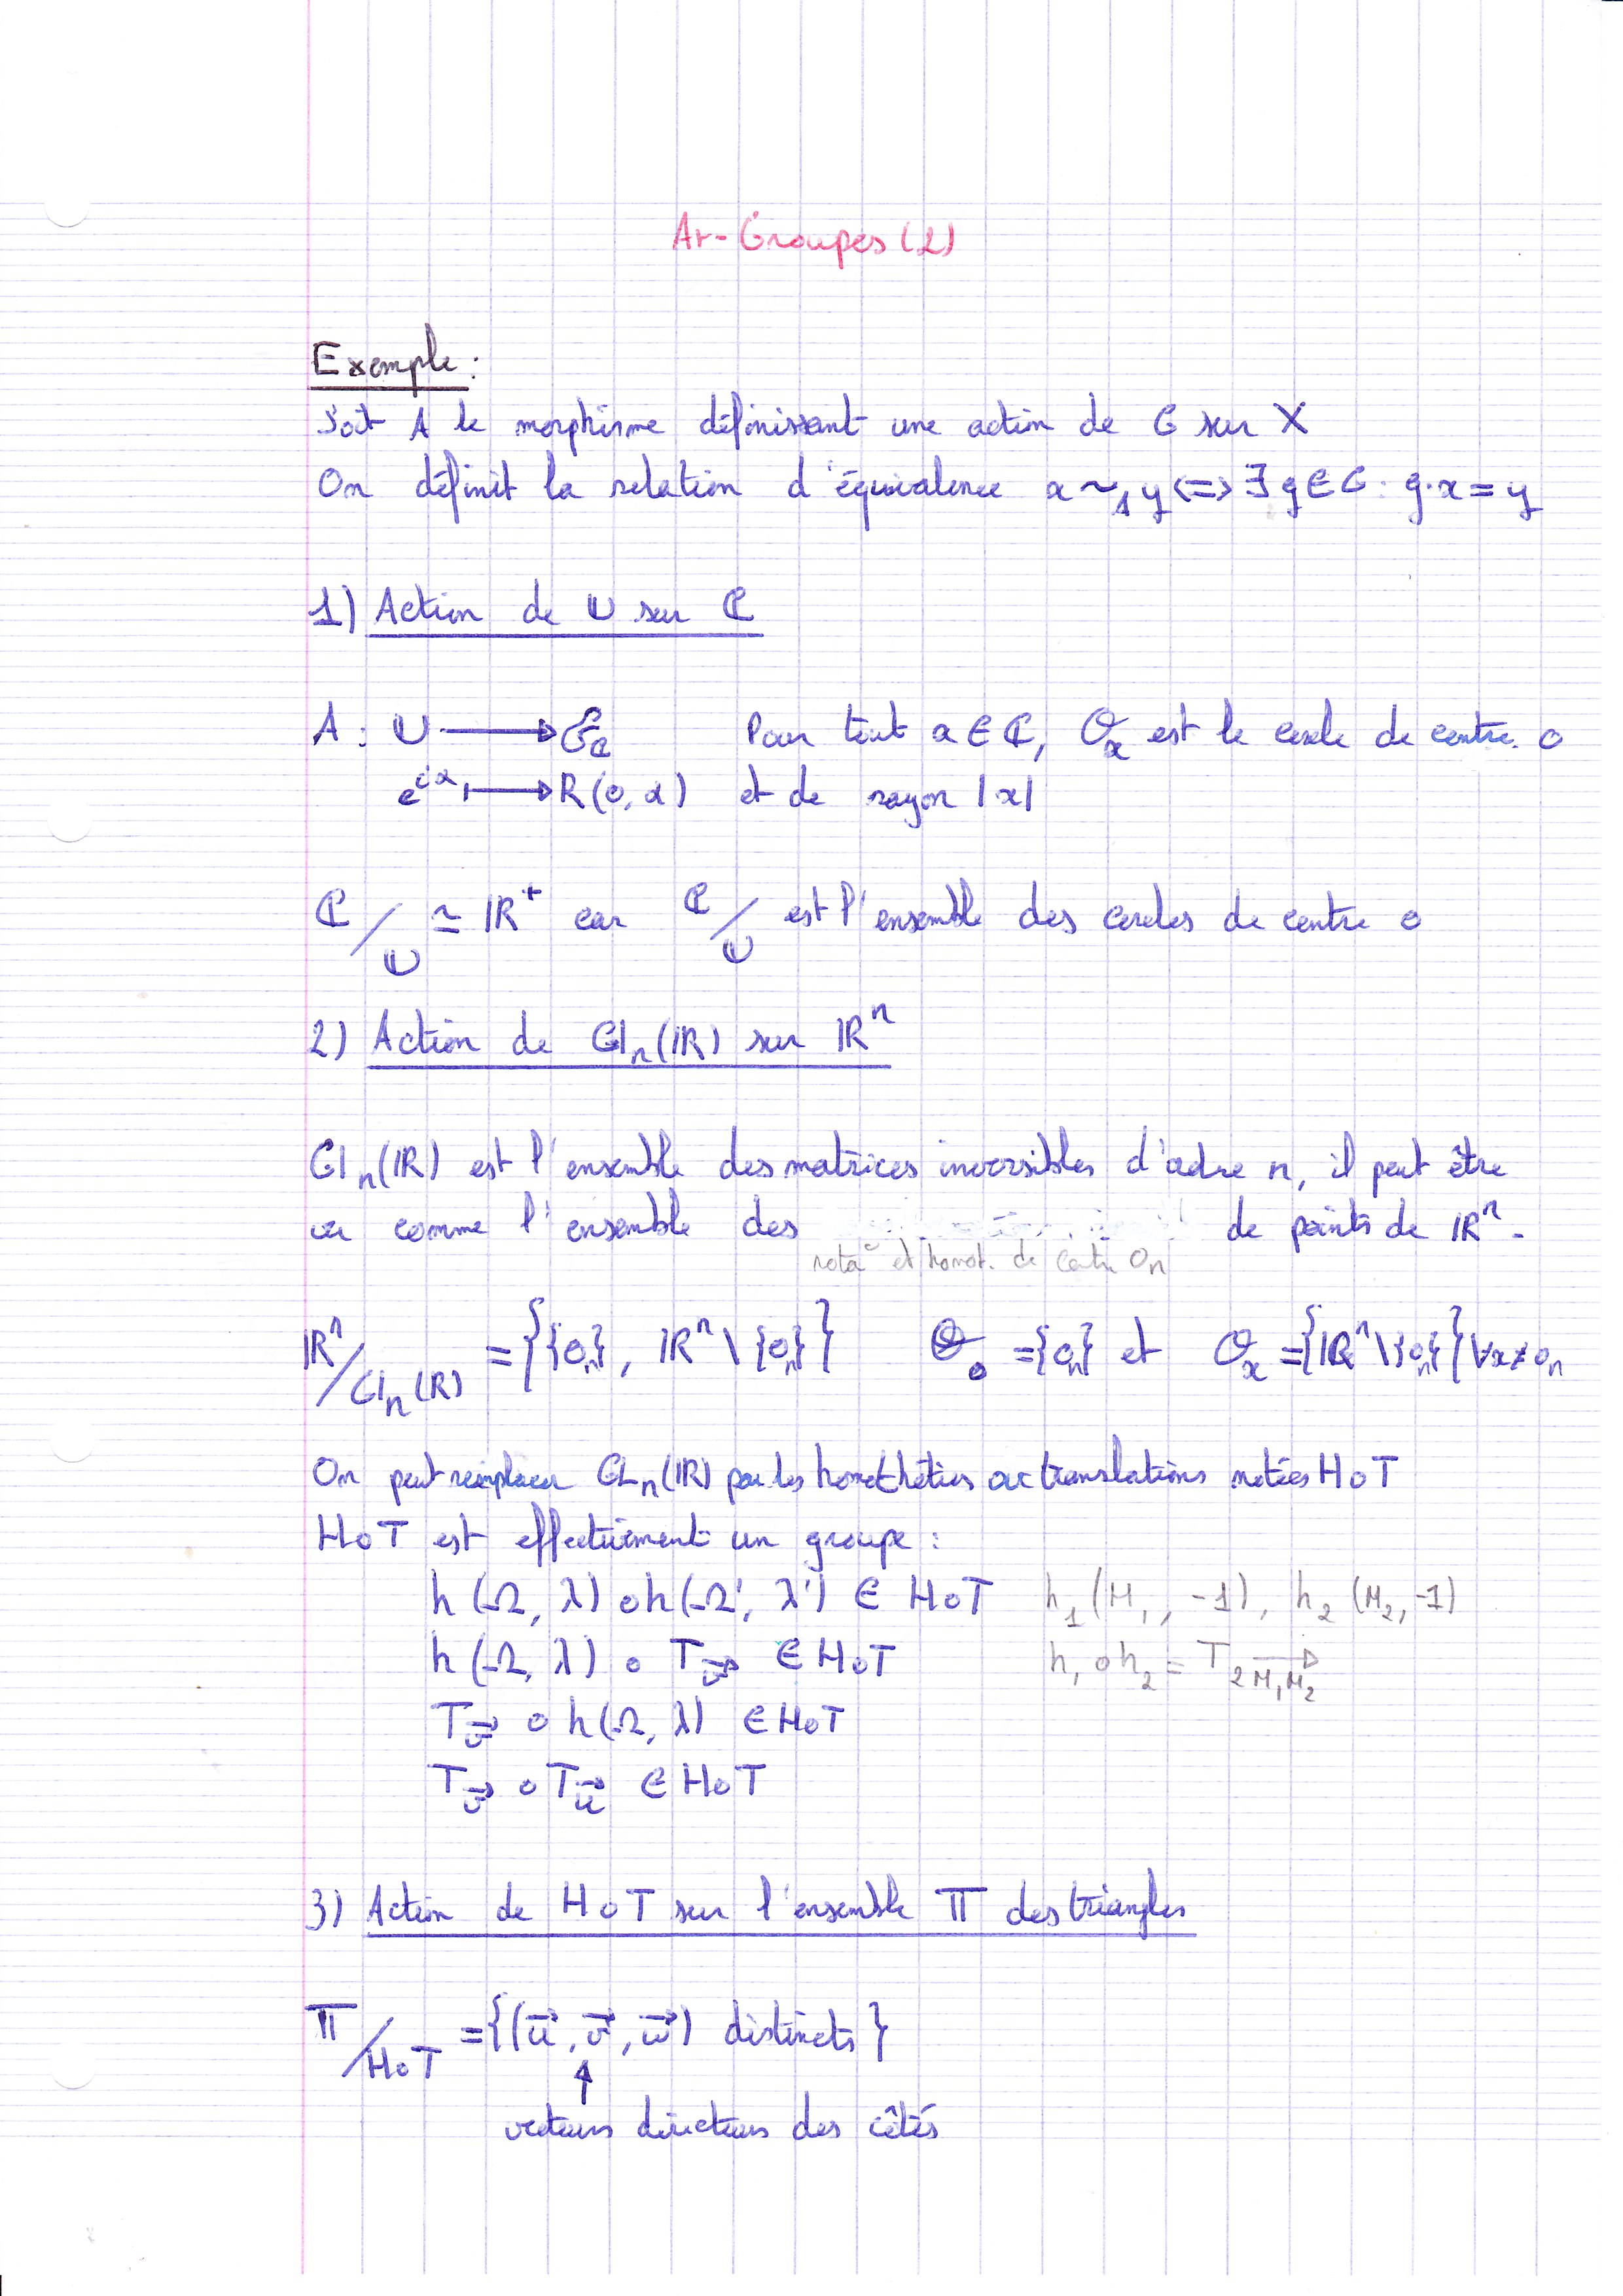 A1-Groupes (2)
Exemple :
Soit A le morphisme définissant une action de G sur X
On définit la relation d'équivalence x ~₁ y <=> ∃ g ∈ G : g·x = y
1) Action de U sur ℂ
A : U → 𝔖_ℂ Pour tout x ∈ ℂ, O_x est le cercle de centre 0
e^{iα} ↦ R(0, α) et de rayon |x|
ℂ/U ≃ ℝ⁺ car ℂ/U est l'ensemble des cercles de centre 0
2) Action de Gl_n(ℝ) sur ℝⁿ
Gl_n(ℝ) est l'ensemble des matrices inversibles d'ordre n, il peut être
vu comme l'ensemble des de points de ℝⁿ.
rota° et homot. de centre 0_n
ℝⁿ/Gl_n(ℝ) = {{0_n}, ℝⁿ \ {0_n}} O_0 = {0_n} et O_x = {ℝⁿ \ {0_n}} ∀x ≠ 0_n
On peut remplacer GL_n(ℝ) par les homothéties ou translations notées HoT
HoT est effectivement un groupe :
h(Ω, λ) o h(Ω', λ') ∈ HoT h₁(M₁, -1), h₂(M₂, -1)
h(Ω, λ) o T_{\vec{v}} ∈ HoT h₁ o h₂ = T_{2\vec{M₁M₂}}
T_{\vec{v}} o h(Ω, λ) ∈ HoT
T_{\vec{v}} o T_{\vec{u}} ∈ HoT
3) Action de HoT sur l'ensemble 𝕋 des triangles
𝕋/HoT = {(\vec{u}, \vec{v}, \vec{w}) distincts}
↑
vecteurs directeurs des côtés